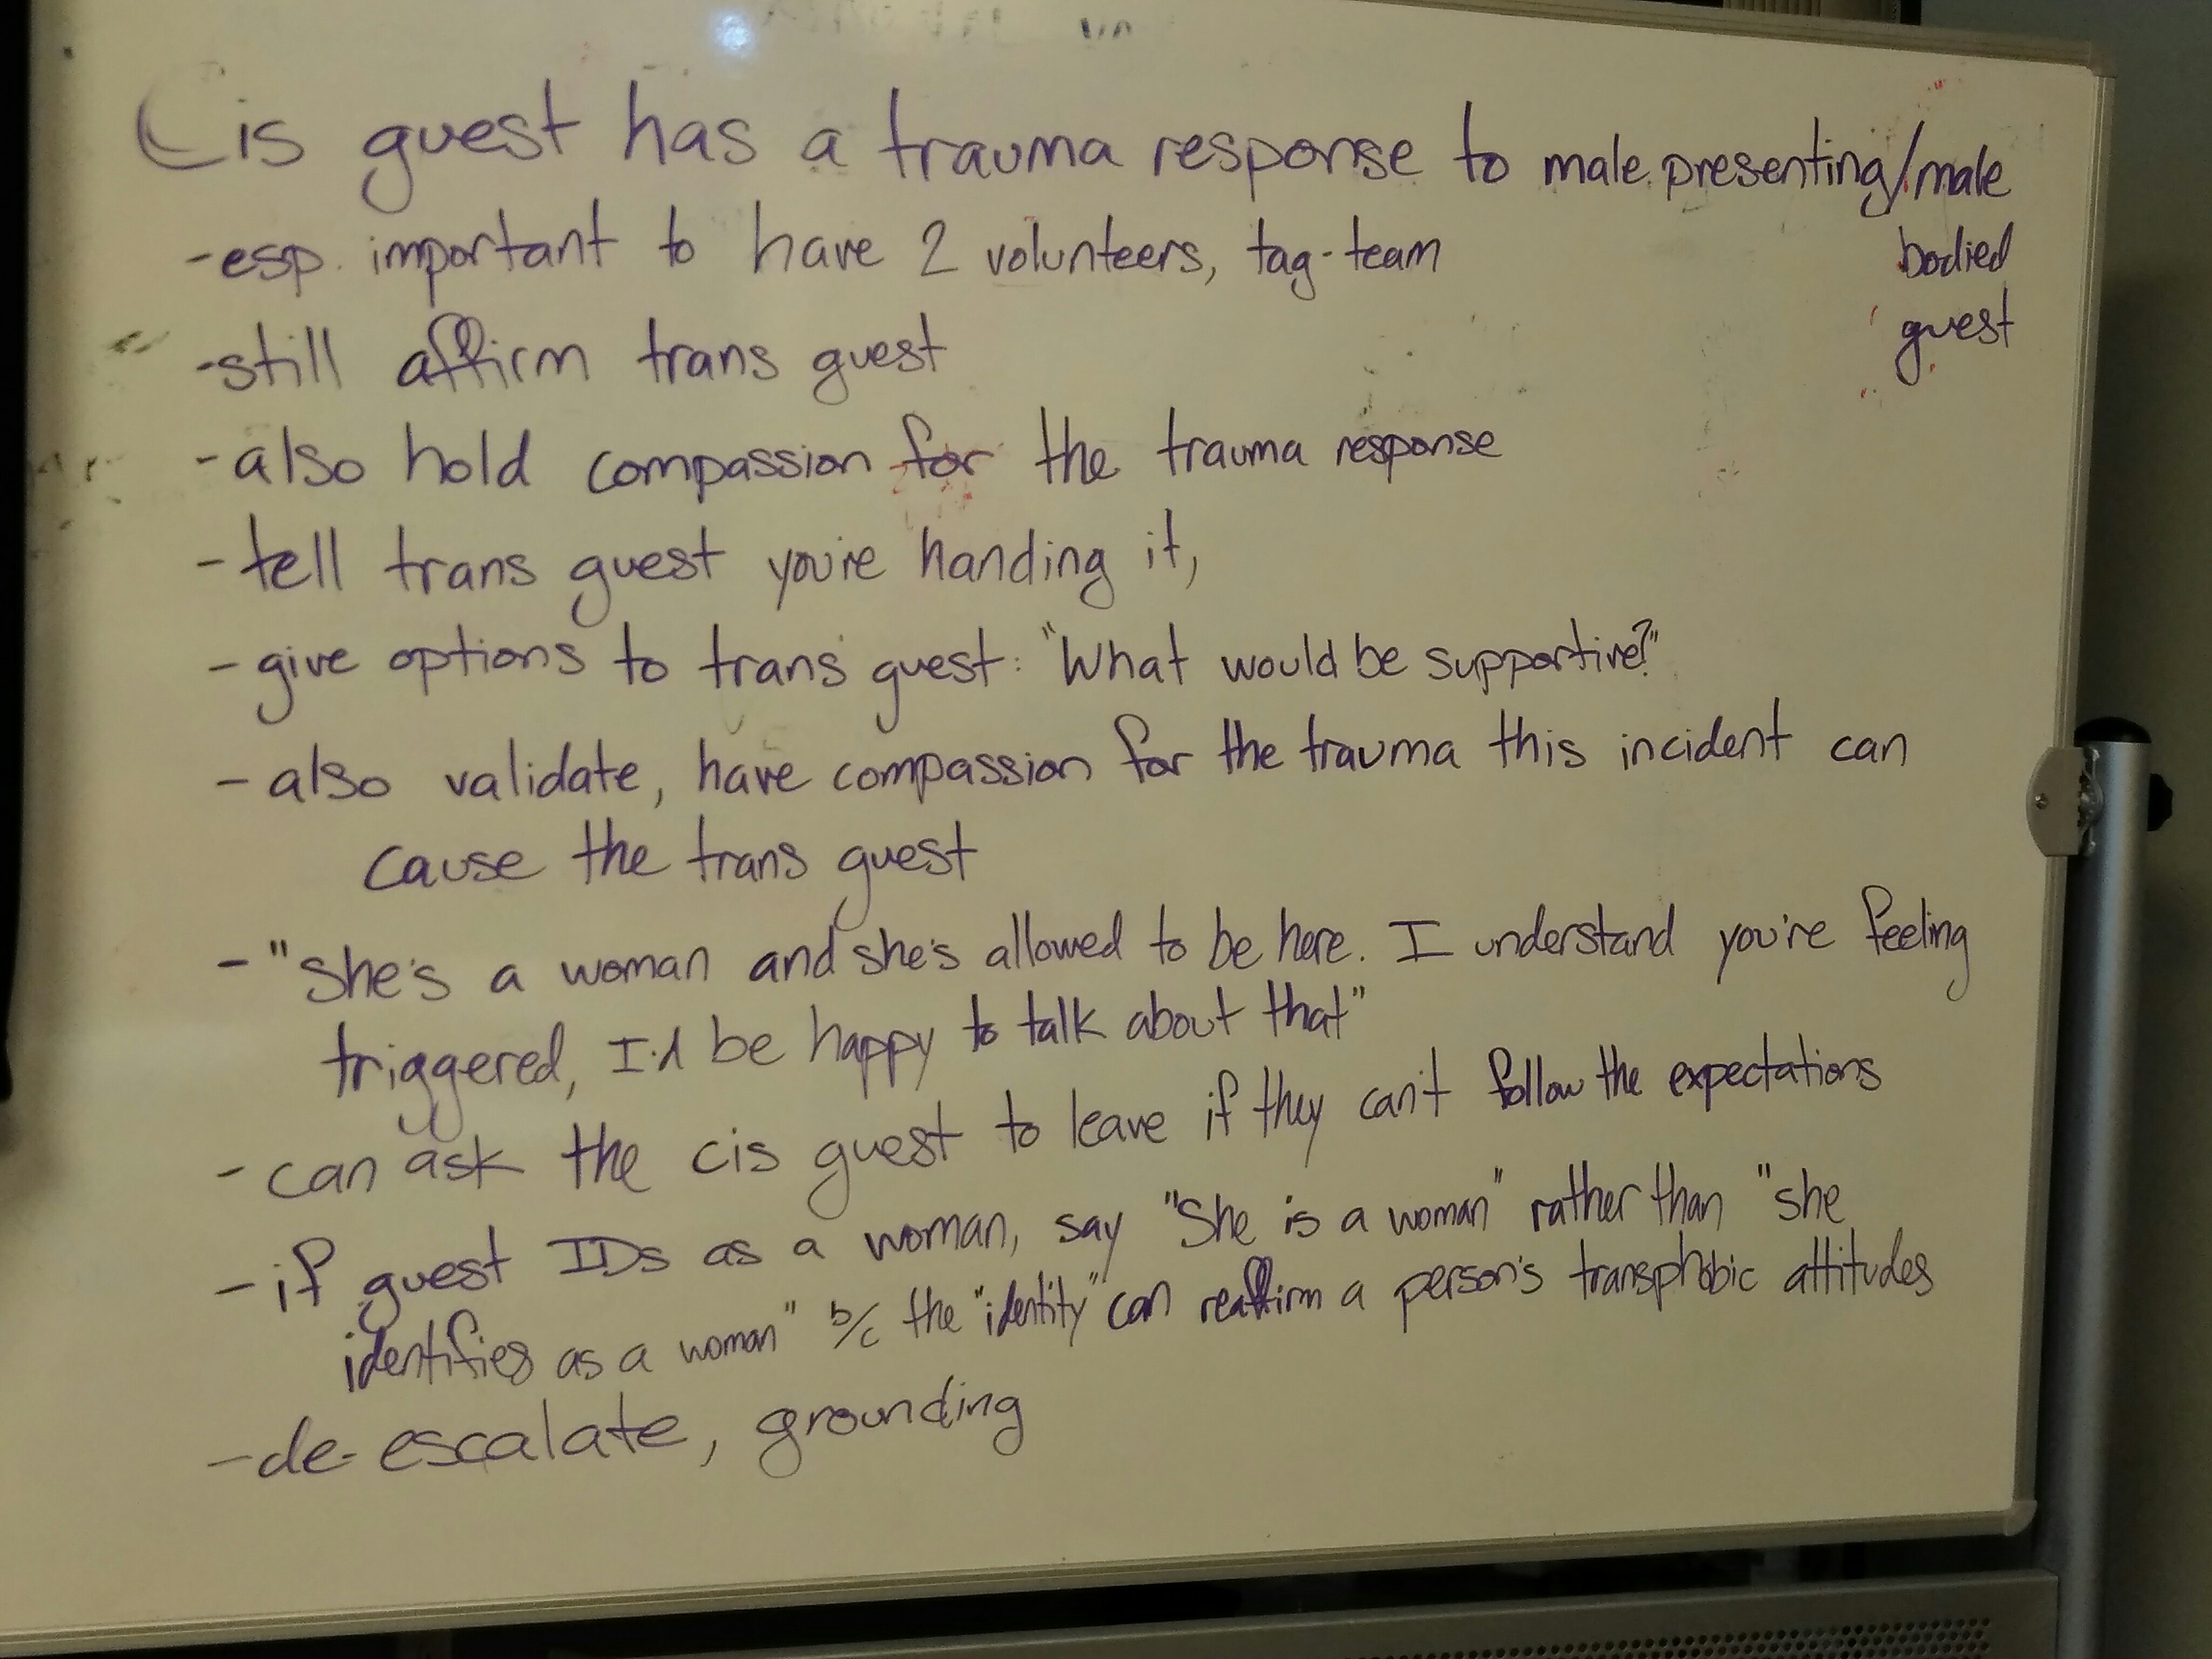 Cis guest has a trauma response to male presenting/male
bodied
guest
-esp. important to have 2 volunteers, tag-team
-still affirm trans guest
-also hold compassion for the trauma response
-tell trans guest you're handing it,
-give options to trans guest: "What would be supportive?"
-also validate, have compassion for the trauma this incident can
cause the trans guest
-"She's a woman and she's allowed to be here. I understand you're feeling
triggered, I'd be happy to talk about that"
-can ask the cis guest to leave if they can't follow the expectations
-if guest IDs as a woman, say "She is a woman" rather than "she
identifies as a woman" b/c the "identity" can reaffirm a person's transphobic attitudes
-de-escalate, grounding